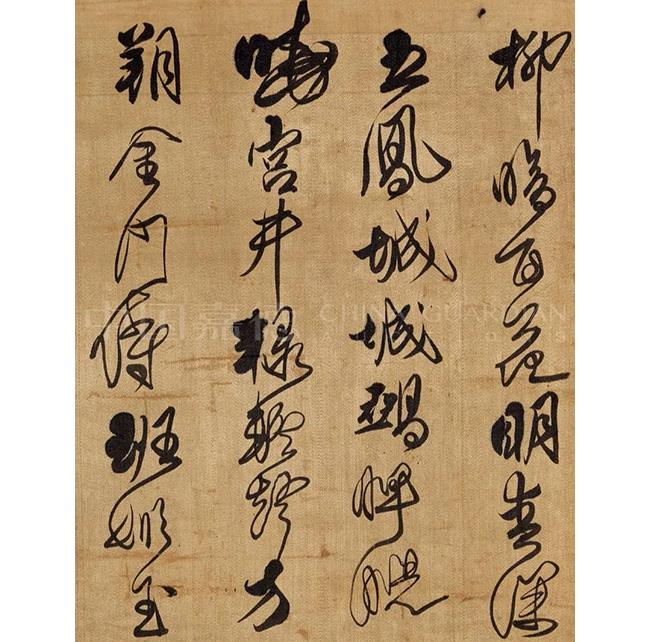 柳暗百花明春深
五鳳城城鵶睥睨
曉宮井轆轤聲方
朔金門侍班姬玉
中国嘉德 CHINA GUARDIAN